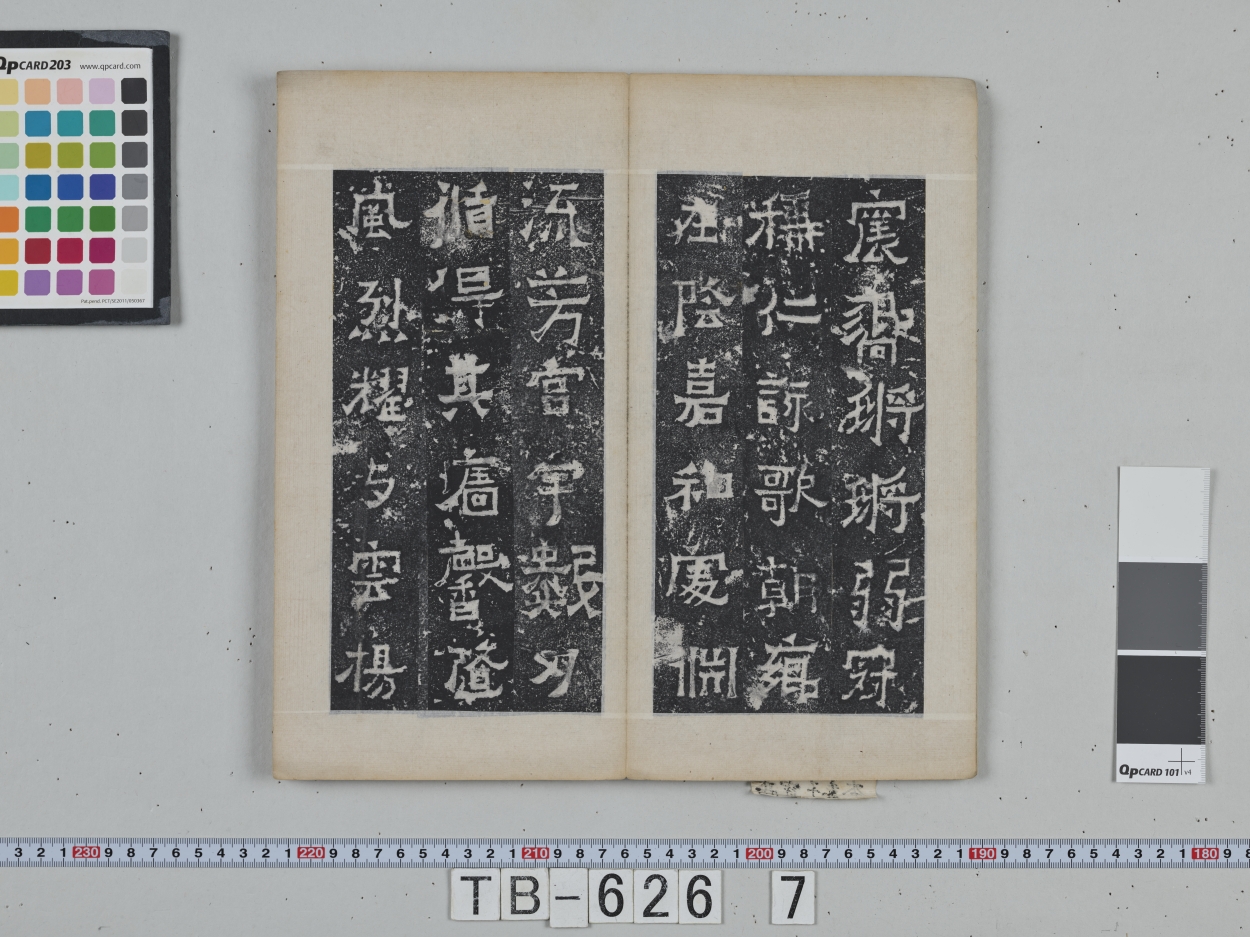 震響鏘鏘弱冠
稱仁詠歌朝鄉
在陰嘉和處淵
流芳宮宇數刃
循得其牆馨隨
風烈耀与雲揚
QpCARD 203 www.qpcard.com
QpCARD 101 v4
3 2 1 230 9 8 7 6 5 4 3 2 1 220 9 8 7 6 5 4 3 2 1 210 9 8 7 6 5 4 3 2 1 200 9 8 7 6 5 4 3 2 1 190 9 8 7 6 5 4 3 2 1 180 9
TB-626 7